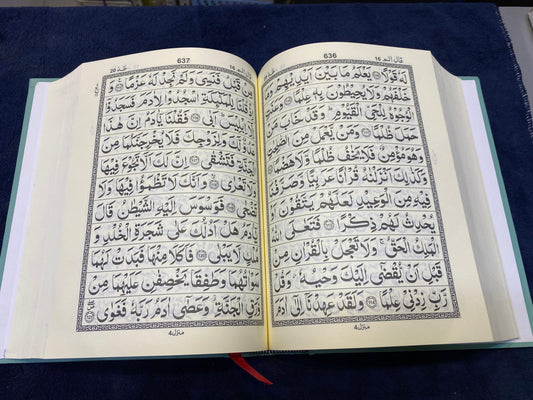 قال الم 16
636
لَهٗ قَوْلًا ۝ يَعْلَمُ مَا بَيْنَ اَيْدِيْهِمْ وَمَا
خَلْفَهُمْ وَلَا يُحِيْطُوْنَ بِهٖ عِلْمًا ۝ وَعَنَتِ
الْوُجُوْهُ لِلْحَيِّ الْقَيُّوْمِ ؕ وَقَدْ خَابَ مَنْ
حَمَلَ ظُلْمًا ۝ وَمَنْ يَّعْمَلْ مِنَ الصّٰلِحٰتِ
وَهُوَ مُؤْمِنٌ فَلَا يَخٰفُ ظُلْمًا وَّلَا هَضْمًا ۝
وَكَذٰلِكَ اَنْزَلْنٰهُ قُرْاٰنًا عَرَبِيًّا وَّصَرَّفْنَا
فِيْهِ مِنَ الْوَعِيْدِ لَعَلَّهُمْ يَتَّقُوْنَ اَوْ
يُحْدِثُ لَهُمْ ذِكْرًا ۝ فَتَعٰلَى اللّٰهُ
الْمَلِكُ الْحَقُّ ۚ وَلَا تَعْجَلْ بِالْقُرْاٰنِ مِنْ
قَبْلِ اَنْ يُّقْضٰٓى اِلَيْكَ وَحْيُهٗ ؗ وَقُلْ
رَّبِّ زِدْنِيْ عِلْمًا ۝ وَلَقَدْ عَهِدْنَاۤ اِلٰٓى اٰدَمَ
منزل 4
قال الم 16
637
طٰهٰ 20
مِنْ قَبْلُ فَنَسِيَ وَلَمْ نَجِدْ لَهٗ عَزْمًا ۝ وَاِذْ
قُلْنَا لِلْمَلٰٓئِكَةِ اسْجُدُوْا لِاٰدَمَ فَسَجَدُوْۤا
اِلَّاۤ اِبْلِيْسَ ؕ اَبٰى ۝ فَقُلْنَا يٰۤاٰدَمُ اِنَّ هٰذَا
عَدُوٌّ لَّكَ وَلِزَوْجِكَ فَلَا يُخْرِجَنَّكُمَا مِنَ
الْجَنَّةِ فَتَشْقٰى ۝ اِنَّ لَكَ اَلَّا تَجُوْعَ فِيْهَا
وَلَا تَعْرٰى ۝ وَاَنَّكَ لَا تَظْمَؤُا فِيْهَا وَلَا
تَضْحٰى ۝ فَوَسْوَسَ اِلَيْهِ الشَّيْطٰنُ قَالَ
يٰۤاٰدَمُ هَلْ اَدُلُّكَ عَلٰى شَجَرَةِ الْخُلْدِ وَ
مُلْكٍ لَّا يَبْلٰى ۝ فَاَكَلَا مِنْهَا فَبَدَتْ لَهُمَا
سَوْاٰتُهُمَا وَطَفِقَا يَخْصِفٰنِ عَلَيْهِمَا مِنْ
وَّرَقِ الْجَنَّةِ ؗ وَعَصٰۤى اٰدَمُ رَبَّهٗ فَغَوٰى ۝
منزل 4